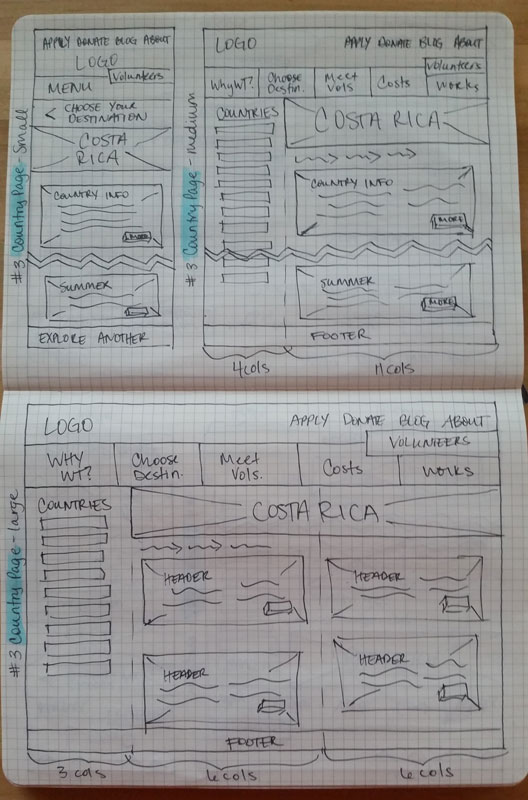 #3 Country Page - Small
APPLY DONATE BLOG ABOUT
LOGO
Volunteers
MENU
< CHOOSE YOUR
DESTINATION
COSTA
RICA
COUNTRY INFO
MORE
SUMMER
EXPLORE ANOTHER
#3 Country Page - Medium
LOGO APPLY DONATE BLOG ABOUT
Volunteers
Why WT? Choose Meet Costs Works
Destin. Vols
COUNTRIES
COSTA RICA
COUNTRY INFO
MORE
SUMMER
MORE
FOOTER
4 cols 11 cols
#3 Country Page - large
LOGO APPLY DONATE BLOG ABOUT
VOLUNTEERS
WHY Choose Meet Costs Works
WT? Destin. Vols.
COUNTRIES
COSTA RICA
HEADER HEADER
HEADER HEADER
FOOTER
3 cols 6 cols 6 cols